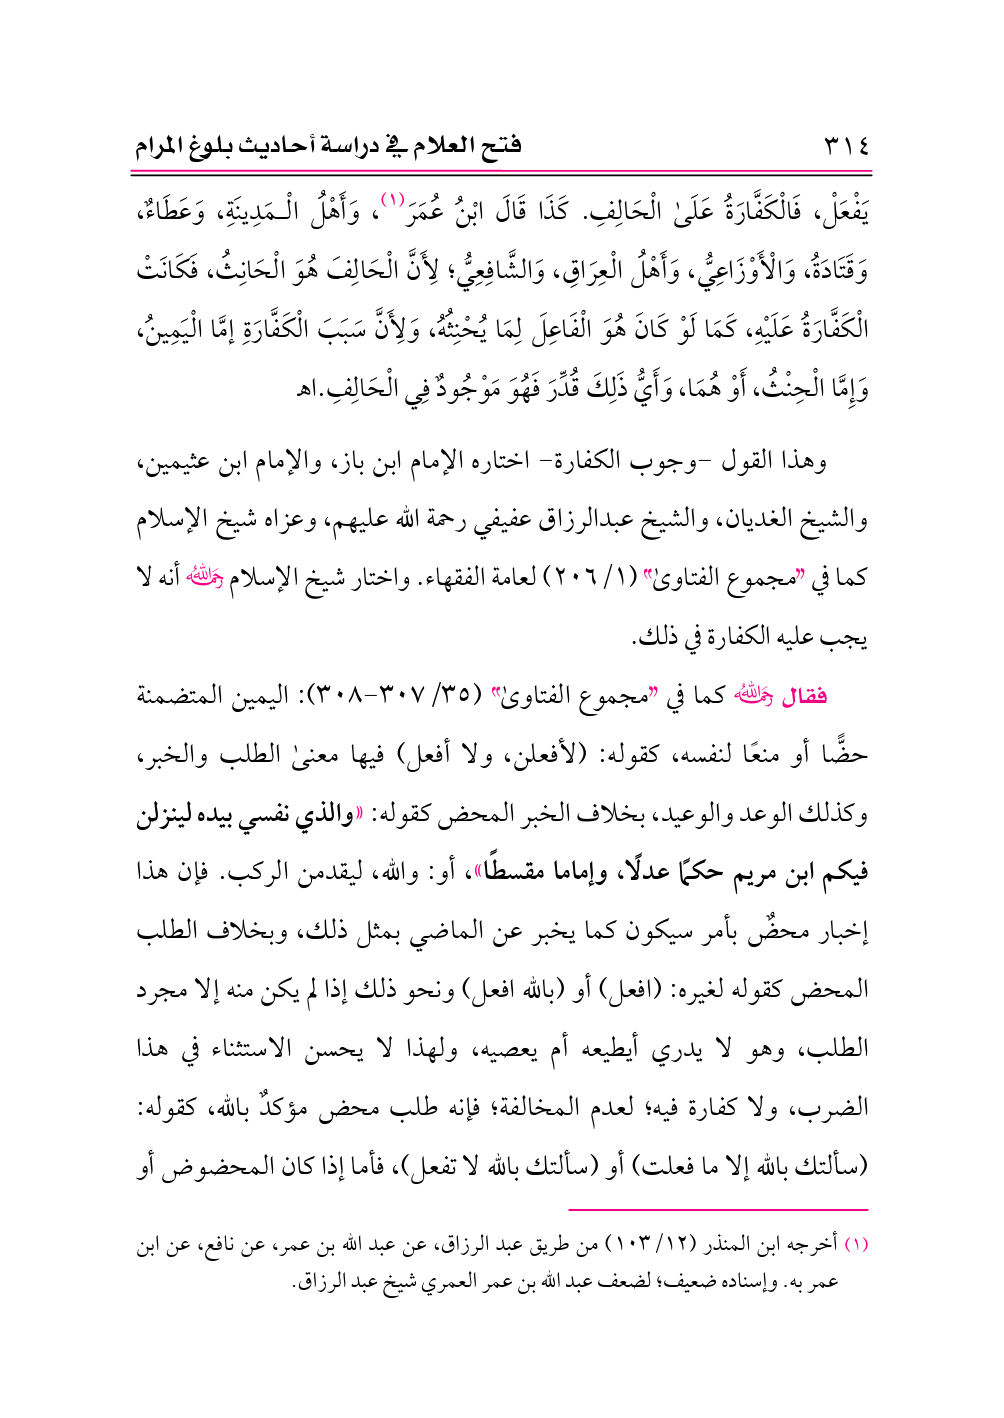 ٣١٤ فتح العلام في دراسة أحاديث بلوغ المرام
يَفْعَلْ، فَالْكَفَّارَةُ عَلَىٰ الْحَالِفِ. كَذَا قَالَ ابْنُ عُمَرَ(١)، وَأَهْلُ الْـمَدِينَةِ، وَعَطَاءٌ،
وَقَتَادَةُ، وَالْأَوْزَاعِيُّ، وَأَهْلُ الْعِرَاقِ، وَالشَّافِعِيُّ؛ لِأَنَّ الْحَالِفَ هُوَ الْحَانِثُ، فَكَانَتْ
الْكَفَّارَةُ عَلَيْهِ، كَمَا لَوْ كَانَ هُوَ الْفَاعِلَ لِمَا يُحْنِثُهُ، وَلِأَنَّ سَبَبَ الْكَفَّارَةِ إمَّا الْيَمِينُ،
وَإِمَّا الْحِنْثُ، أَوْ هُمَا، وَأَيُّ ذَلِكَ قُدِّرَ فَهُوَ مَوْجُودٌ فِي الْحَالِفِ.اهـ
وهذا القول –وجوب الكفارة– اختاره الإمام ابن باز، والإمام ابن عثيمين،
والشيخ الغديان، والشيخ عبدالرزاق عفيفي رحمة الله عليهم، وعزاه شيخ الإسلام
كما في ”مجموع الفتاوىٰ“ (١/ ٢٠٦) لعامة الفقهاء. واختار شيخ الإسلام رحمه الله أنه لا
يجب عليه الكفارة في ذلك.
فقال رحمه الله كما في ”مجموع الفتاوىٰ“ (٣٥/ ٣٠٧–٣٠٨): اليمين المتضمنة
حضًّا أو منعًا لنفسه، كقوله: (لأفعلن، ولا أفعل) فيها معنىٰ الطلب والخبر،
وكذلك الوعد والوعيد، بخلاف الخبر المحض كقوله: «والذي نفسي بيده لينزلن
فيكم ابن مريم حكمًا عدلًا، وإماما مقسطًا»، أو: والله، ليقدمن الركب. فإن هذا
إخبار محضٌ بأمر سيكون كما يخبر عن الماضي بمثل ذلك، وبخلاف الطلب
المحض كقوله لغيره: (افعل) أو (بالله افعل) ونحو ذلك إذا لم يكن منه إلا مجرد
الطلب، وهو لا يدري أيطيعه أم يعصيه، ولهذا لا يحسن الاستثناء في هذا
الضرب، ولا كفارة فيه؛ لعدم المخالفة؛ فإنه طلب محض مؤكدٌ بالله، كقوله:
(سألتك بالله إلا ما فعلت) أو (سألتك بالله لا تفعل)، فأما إذا كان المحضوض أو
(١) أخرجه ابن المنذر (١٢/ ١٠٣) من طريق عبد الرزاق، عن عبد الله بن عمر، عن نافع، عن ابن
عمر به. وإسناده ضعيف؛ لضعف عبد الله بن عمر العمري شيخ عبد الرزاق.